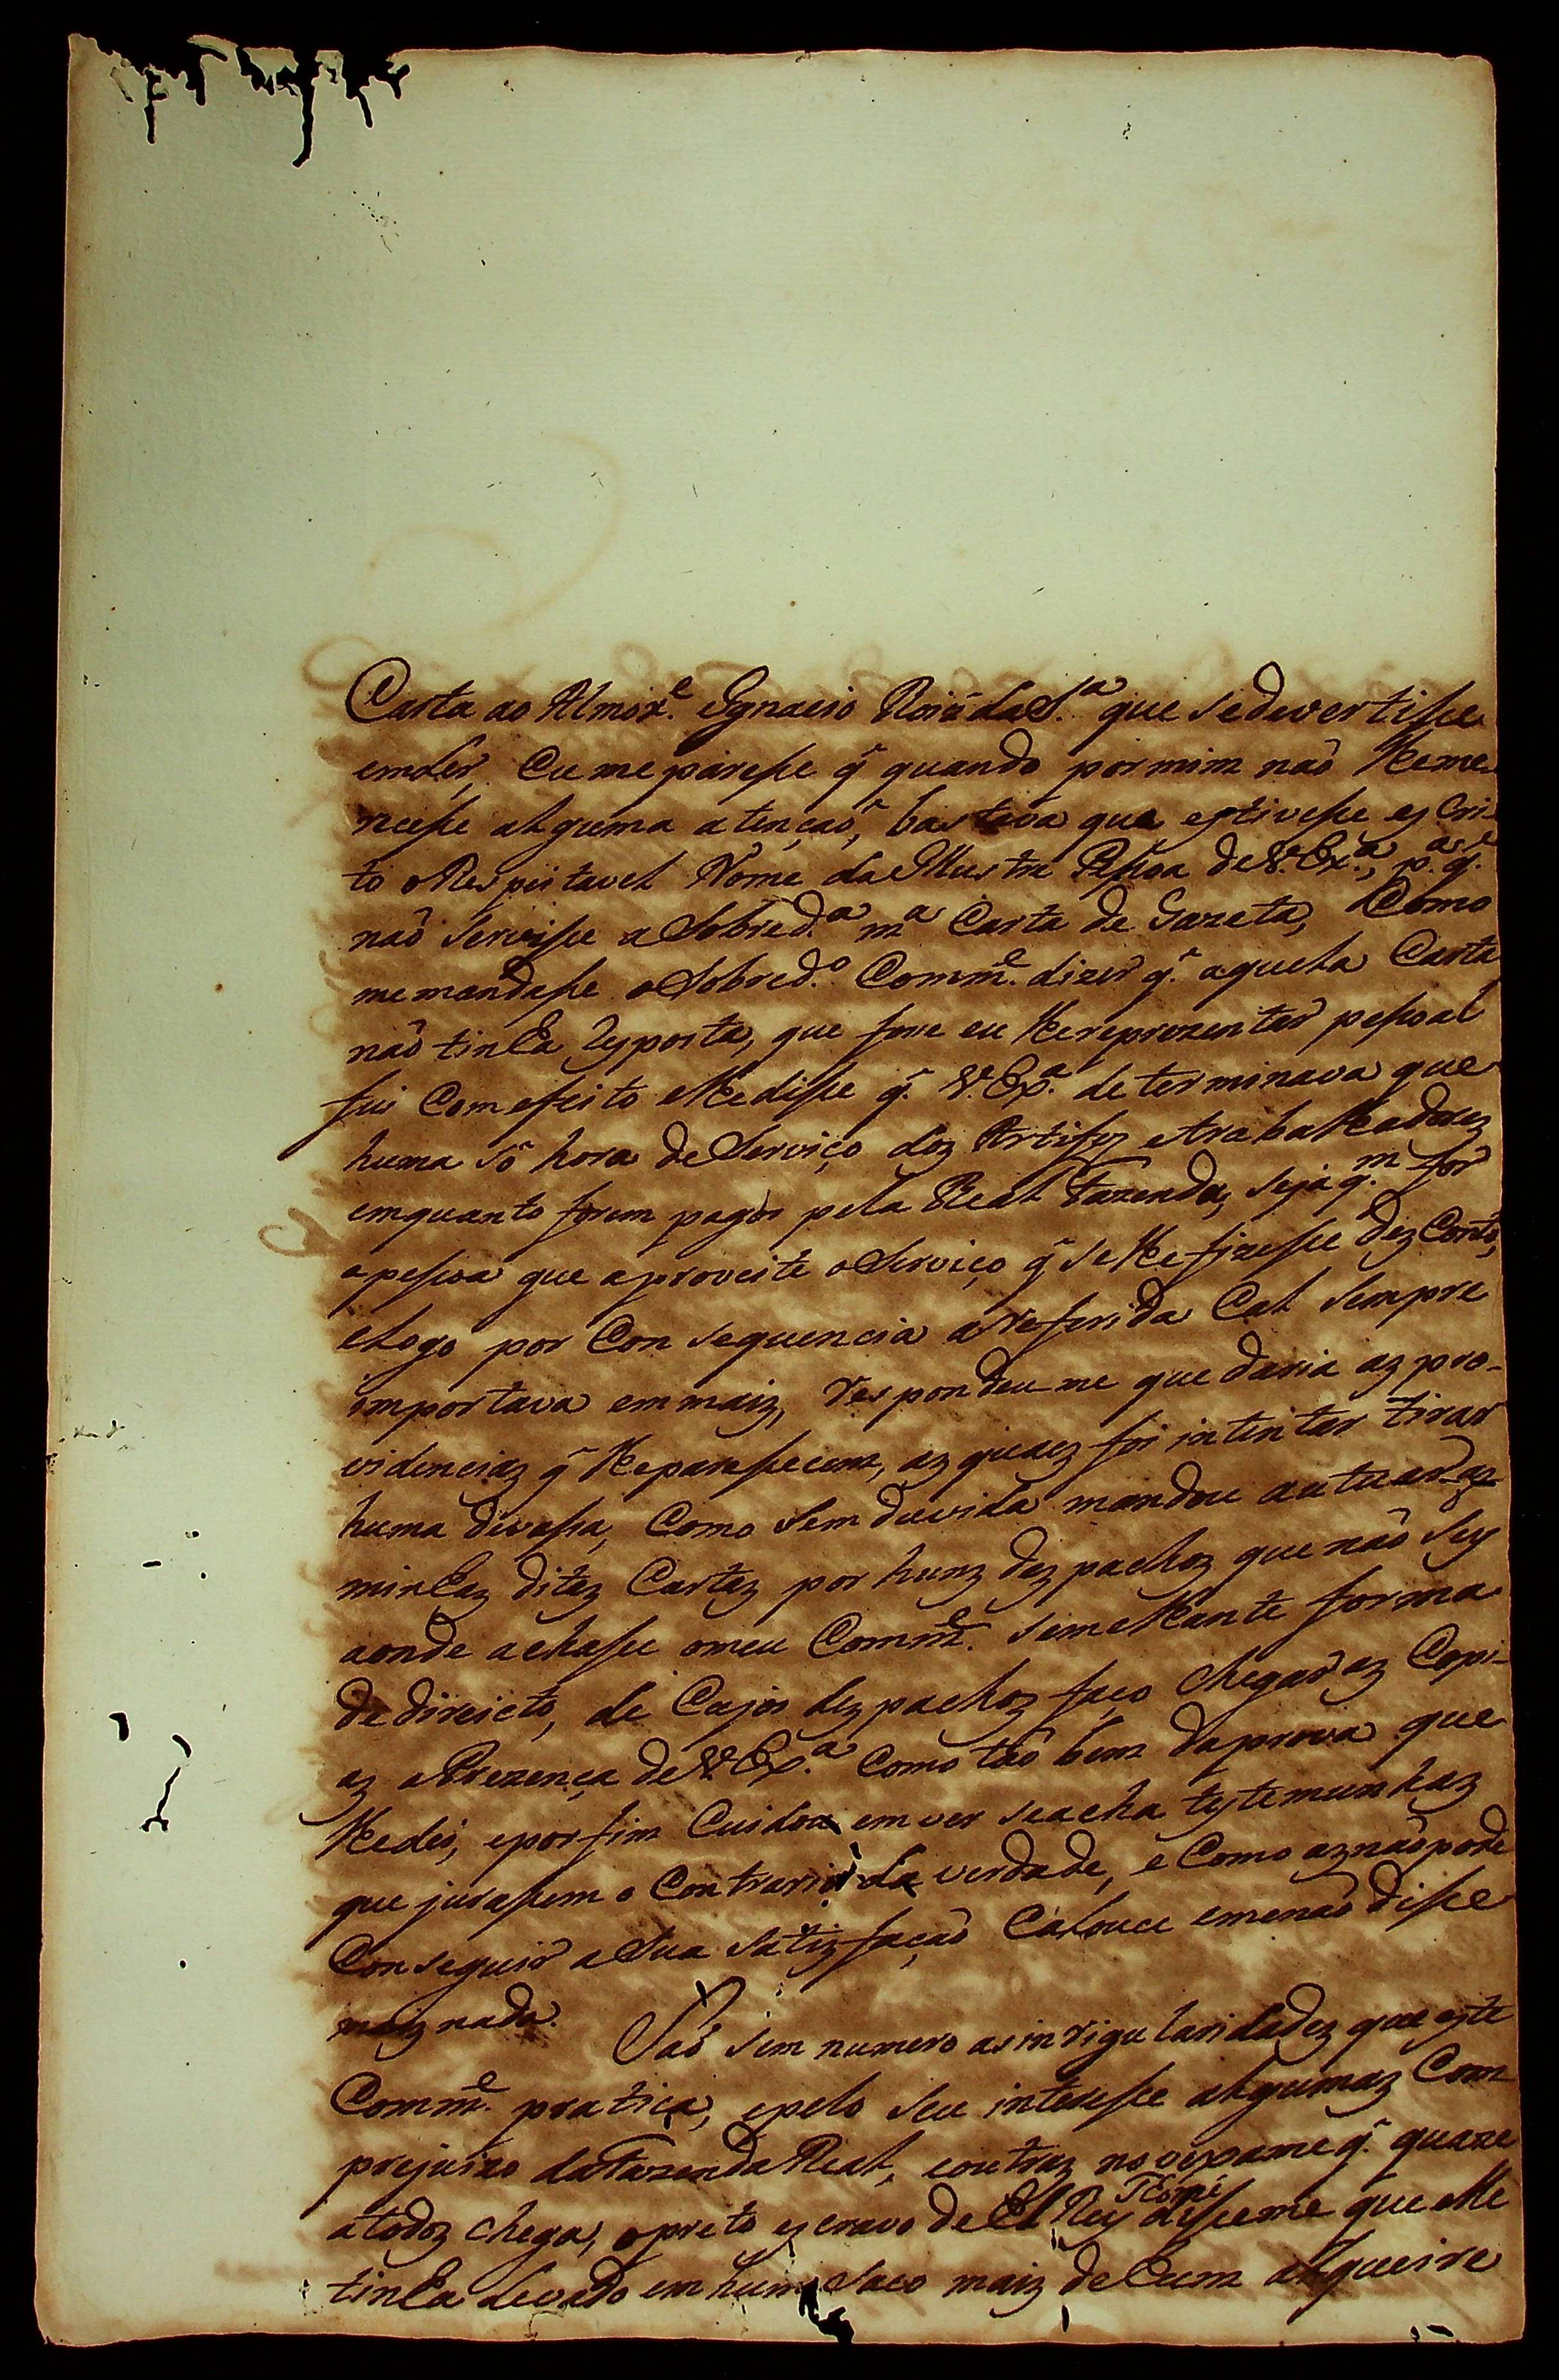 Carta ao Almox.e Ignacio Roiz da S.a que sedivertisse
emler, Eu me paresse q̃ quando por mim naõ lheme-
recesse alguma atençaõ, bastava que estivesse escri-
to o Respeitavel Nome da Illustre Pessoa de V. Ex.a, p.a q.e
naõ servisse a Sobred.a m.a Carta de Gazeta, Como
memandasse o Sobred.o Comm.e dizer q̃. aquela Carta
naõ tinha resposta, que fosse eu lhereprezentar pessoal
fui Com efeito elhedisse q̃. V. Ex.a determinava que
huma só hora de Serviço dos Artifes etrabalhadores
emquanto forem pagos pela Real Fazenda, seja q.m for
apessoa que aproveite oServiço q̃ selhefizesse dezConto,
elogo por Consequencia areferida Cal Sempre
importava em maiz, respondeu-me que daria az pro-
videnciaz q̃ lheparessecem, az quaez foi intentar tirar
huma devassa, Como Sem duvida mandou autuar az
minhaz ditaz Cartaz por hunz dezpachoz que naõ Sey
aonde achasse omeu Comm.e Semelhante forma
de direicto, de Cujos dezpachoz faço chegar az Copi-
az aPrezença de V. Ex.a Como taõ bem daprova que
lhedei, eporfim Cuidou em ver seacha testemunhaz
que jurassem o Contrario da verdade, e Como aznaõpode
Conseguir aSua Satizfaçaõ Calouce emenaõ disse
maiz nada.
Saõ sem numero as inrigularidadez que este
Comm.e pratica, epelo seu interesse algumaz Com
prejuizo daFazenda Real, eoutraz no vexame q̃. quaze
atodoz chega, opreto escravo de El Rey Thomé disseme que elle
tinha Levado em hum Saco maiz de hum alqueire